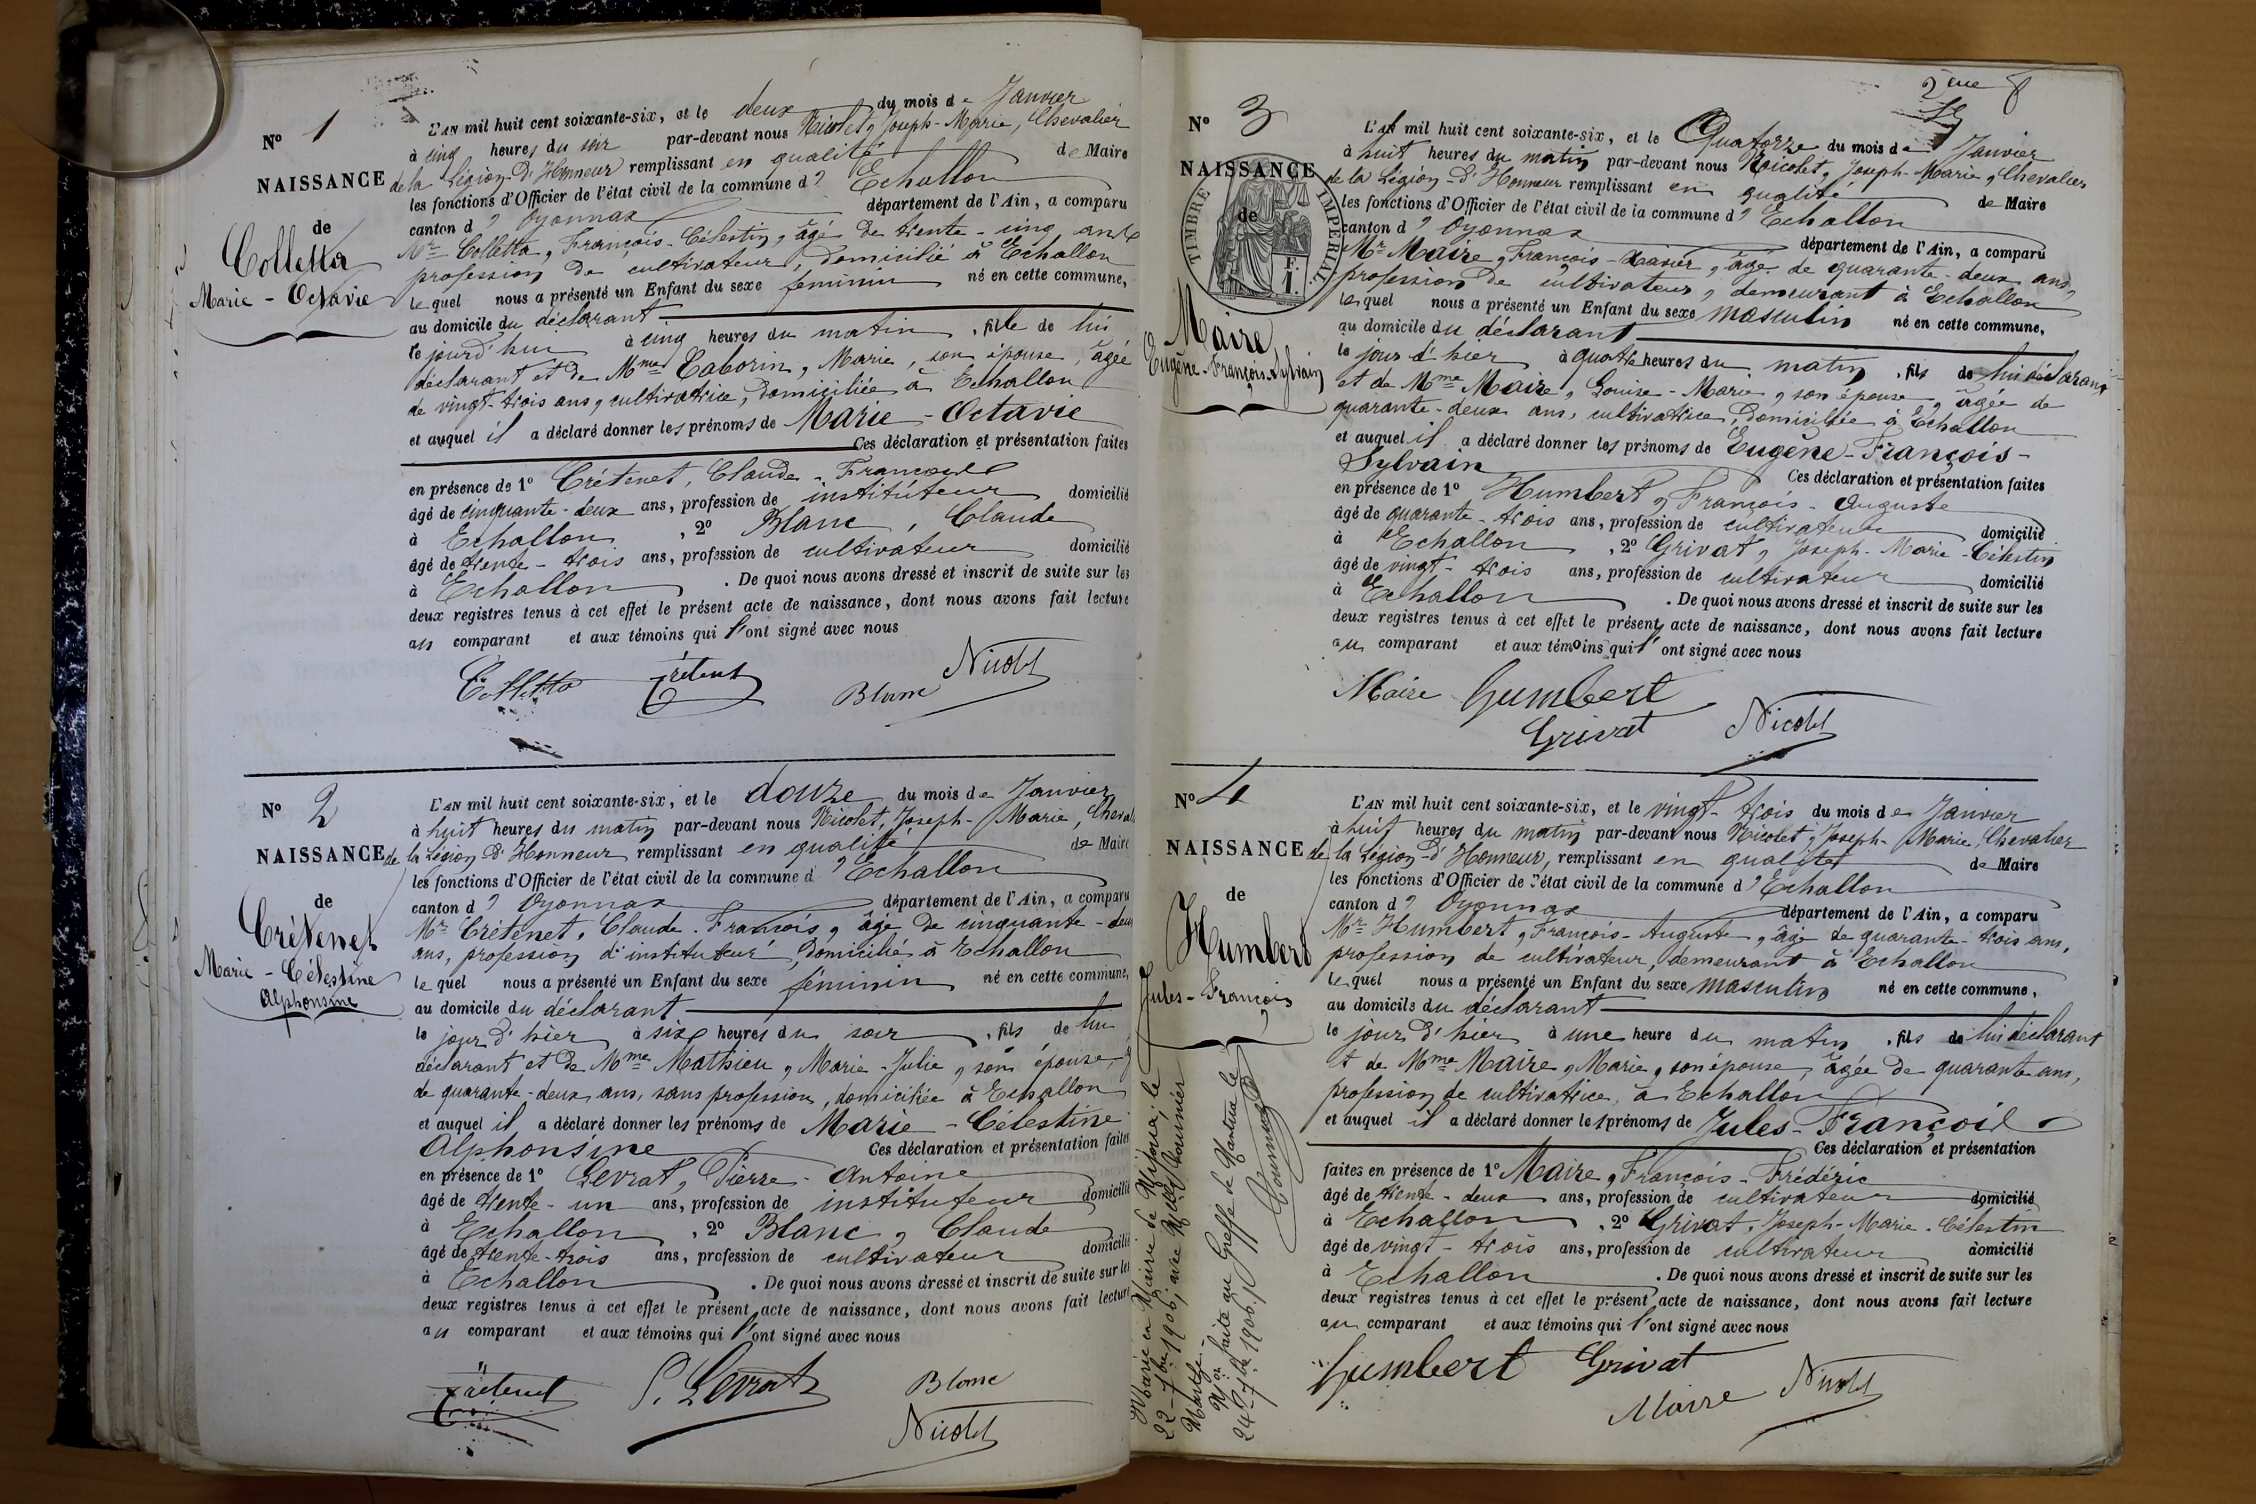 N° 1
NAISSANCE
de
Colletta
Marie - Octavie
L'AN mil huit cent soixante-six, et le deux du mois de Janvier
à cinq heures du soir par-devant nous Nicolet, Joseph-Marie, Chevalier
de la Légion-d'Honneur remplissant en qualité de Maire
les fonctions d'Officier de l'état civil de la commune d' Echallon
canton d' Oyonnax département de l'Ain, a comparu
Mr Colletta, François-Célestin, âgé de trente-cinq ans
profession de cultivateur, domicilié à Echallon
lequel nous a présenté un Enfant du sexe féminin né en cette commune,
au domicile du déclarant
le jourd'hui à cinq heures du matin, fille de lui
déclarant et de Mme Taborin, Marie, son épouse, âgée
de vingt-trois ans, cultivatrice, domiciliée à Echallon
et auquel il a déclaré donner les prénoms de Marie-Octavie
Ces déclaration et présentation faites
en présence de 1° Crétenet, Claude-François
âgé de cinquante-deux ans, profession de instituteur domicilié
à Echallon, 2° Blanc, Claude
âgé de trente-trois ans, profession de cultivateur domicilié
à Echallon. De quoi nous avons dressé et inscrit de suite sur les
deux registres tenus à cet effet le présent acte de naissance, dont nous avons fait lecture
au comparant et aux témoins qui l'ont signé avec nous
Colletta Crétenet Blanc Nicolet
N° 2
NAISSANCE
de
Crétenet
Marie - Célestine
Alphonsine
L'AN mil huit cent soixante-six, et le douze du mois de Janvier
à huit heures du matin par-devant nous Nicolet, Joseph-Marie, Cheval
de la Légion d'Honneur remplissant en qualité de Maire
les fonctions d'Officier de l'état civil de la commune d' Echallon
canton d' Oyonnax département de l'Ain, a comparu
Mr Crétenet, Claude-François, âgé de cinquante-deux
ans, profession d'instituteur, domicilié à Echallon
lequel nous a présenté un Enfant du sexe féminin né en cette commune,
au domicile du déclarant
le jour d'hier à six heures du soir, fils de lui
déclarant et de Mme Mathieu, Marie-Julie, son épouse,
de quarante-deux ans, sans profession, domiciliée à Echallon
et auquel il a déclaré donner les prénoms de Marie-Célestine
Alphonsine Ces déclaration et présentation faites
en présence de 1° Levrat, Pierre-Antoine
âgé de trente-un ans, profession de instituteur domicilié
à Echallon, 2° Blanc, Claude
âgé de trente-trois ans, profession de cultivateur domicilié
à Echallon. De quoi nous avons dressé et inscrit de suite sur les
deux registres tenus à cet effet le présent acte de naissance, dont nous avons fait lecture
au comparant et aux témoins qui l'ont signé avec nous
Crétenet P. Levrat Blanc
Nicolet
2eme
N° 3
NAISSANCE
de
TIMBRE IMPÉRIAL
F.
1.
Maire
Eugène-François-Sylvain
L'AN mil huit cent soixante-six, et le Quatorze du mois de Janvier
à huit heures du matin par-devant nous Nicolet, Joseph-Marie, Chevalier
de la Légion-d'Honneur remplissant en qualité de Maire
les fonctions d'Officier de l'état civil de la commune d' Echallon
canton d' Oyonnax département de l'Ain, a comparu
Mr Maire, François-Xavier, âgé de quarante-deux ans,
profession de cultivateur, demeurant à Echallon
lequel nous a présenté un Enfant du sexe masculin né en cette commune,
au domicile du déclarant
le jour d'hier à quatre heures du matin, fils de lui déclarant
et de Mme Maire, Louise-Marie, son épouse, âgée de
quarante-deux ans, cultivatrice, domiciliée à Echallon
et auquel il a déclaré donner les prénoms de Eugène-François-
Sylvain Ces déclaration et présentation faites
en présence de 1° Humbert, François-Auguste
âgé de quarante-trois ans, profession de cultivateur domicilié
à Echallon, 2° Grivat, Joseph-Marie-Célestin
âgé de vingt-trois ans, profession de cultivateur domicilié
à Echallon. De quoi nous avons dressé et inscrit de suite sur les
deux registres tenus à cet effet le présent acte de naissance, dont nous avons fait lecture
au comparant et aux témoins qui l'ont signé avec nous
Maire Humbert
Grivat Nicolet
N° 4
NAISSANCE
de
Humbert
Jules-François
Marié en Mairie de le
22 - 7bre 1906, avec Melle
Marthe
Mon faite au Greffe de Nantua le
24 - 7bre 1906.
L'AN mil huit cent soixante-six, et le vingt-trois du mois de Janvier
à huit heures du matin par-devant nous Nicolet, Joseph-Marie, Chevalier
de la Légion-d'Honneur, remplissant en qualité de Maire
les fonctions d'Officier de l'état civil de la commune d' Echallon
canton d' Oyonnax département de l'Ain, a comparu
Mr Humbert, François-Auguste, âgé de quarante-trois ans,
profession de cultivateur, demeurant à Echallon
lequel nous a présenté un Enfant du sexe masculin né en cette commune,
au domicile du déclarant
le jour d'hier à une heure du matin, fils de lui déclarant
et de Mme Maire, Marie, son épouse, âgée de quarante ans,
profession de cultivatrice, à Echallon
et auquel il a déclaré donner les prénoms de Jules-François
Ces déclaration et présentation
faites en présence de 1° Maire, François-Frédéric
âgé de trente-deux ans, profession de cultivateur domicilié
à Echallon, 2° Grivat, Joseph-Marie-Célestin
âgé de vingt-trois ans, profession de cultivateur domicilié
à Echallon. De quoi nous avons dressé et inscrit de suite sur les
deux registres tenus à cet effet le présent acte de naissance, dont nous avons fait lecture
au comparant et aux témoins qui l'ont signé avec nous
Humbert Grivat
Maire Nicolet